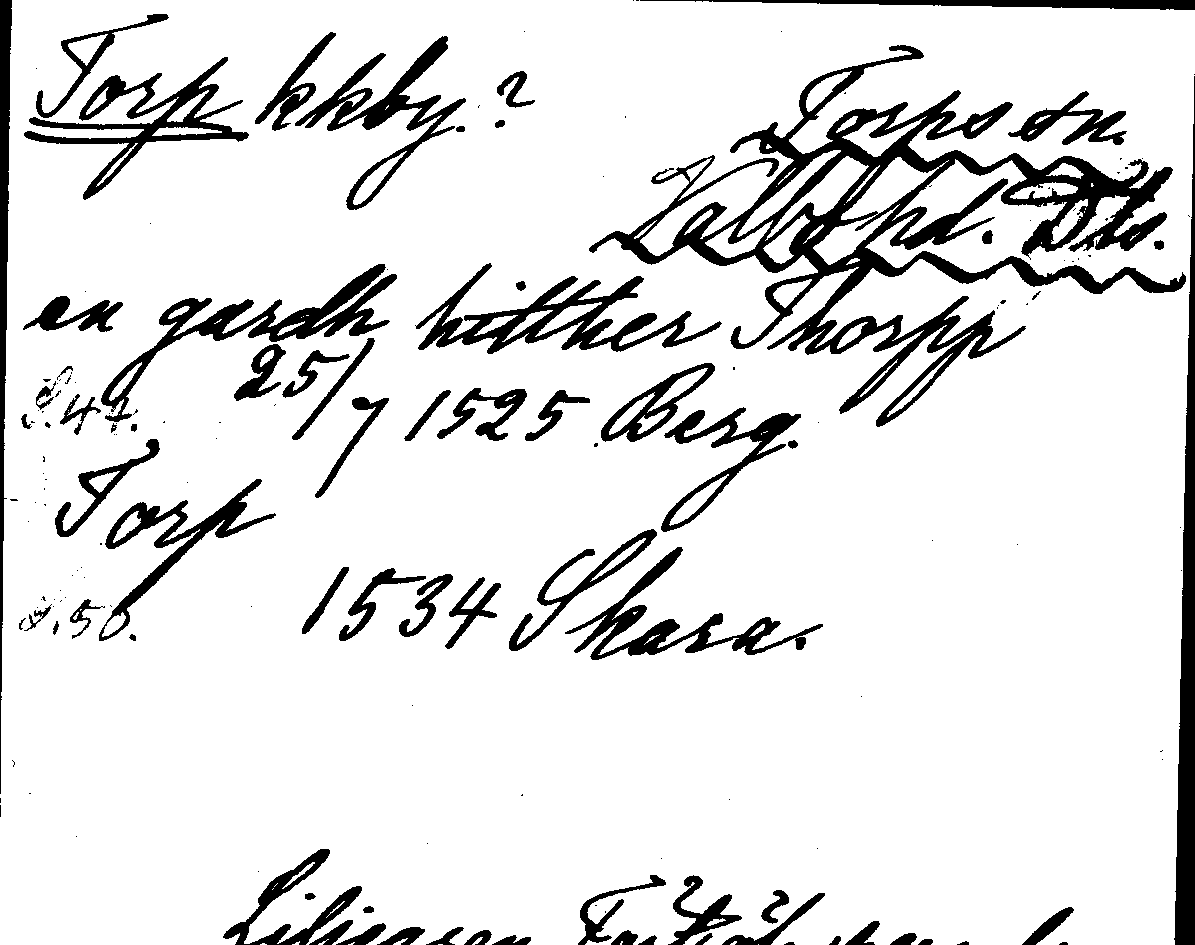 Torp kkby.?
Torps sn.
Valbo hd. Dls.
en gardh hitther Thorpp
S.47. 25/7 1525 Berg.
Torp
S.50. 1534 Skara.
Liljegren